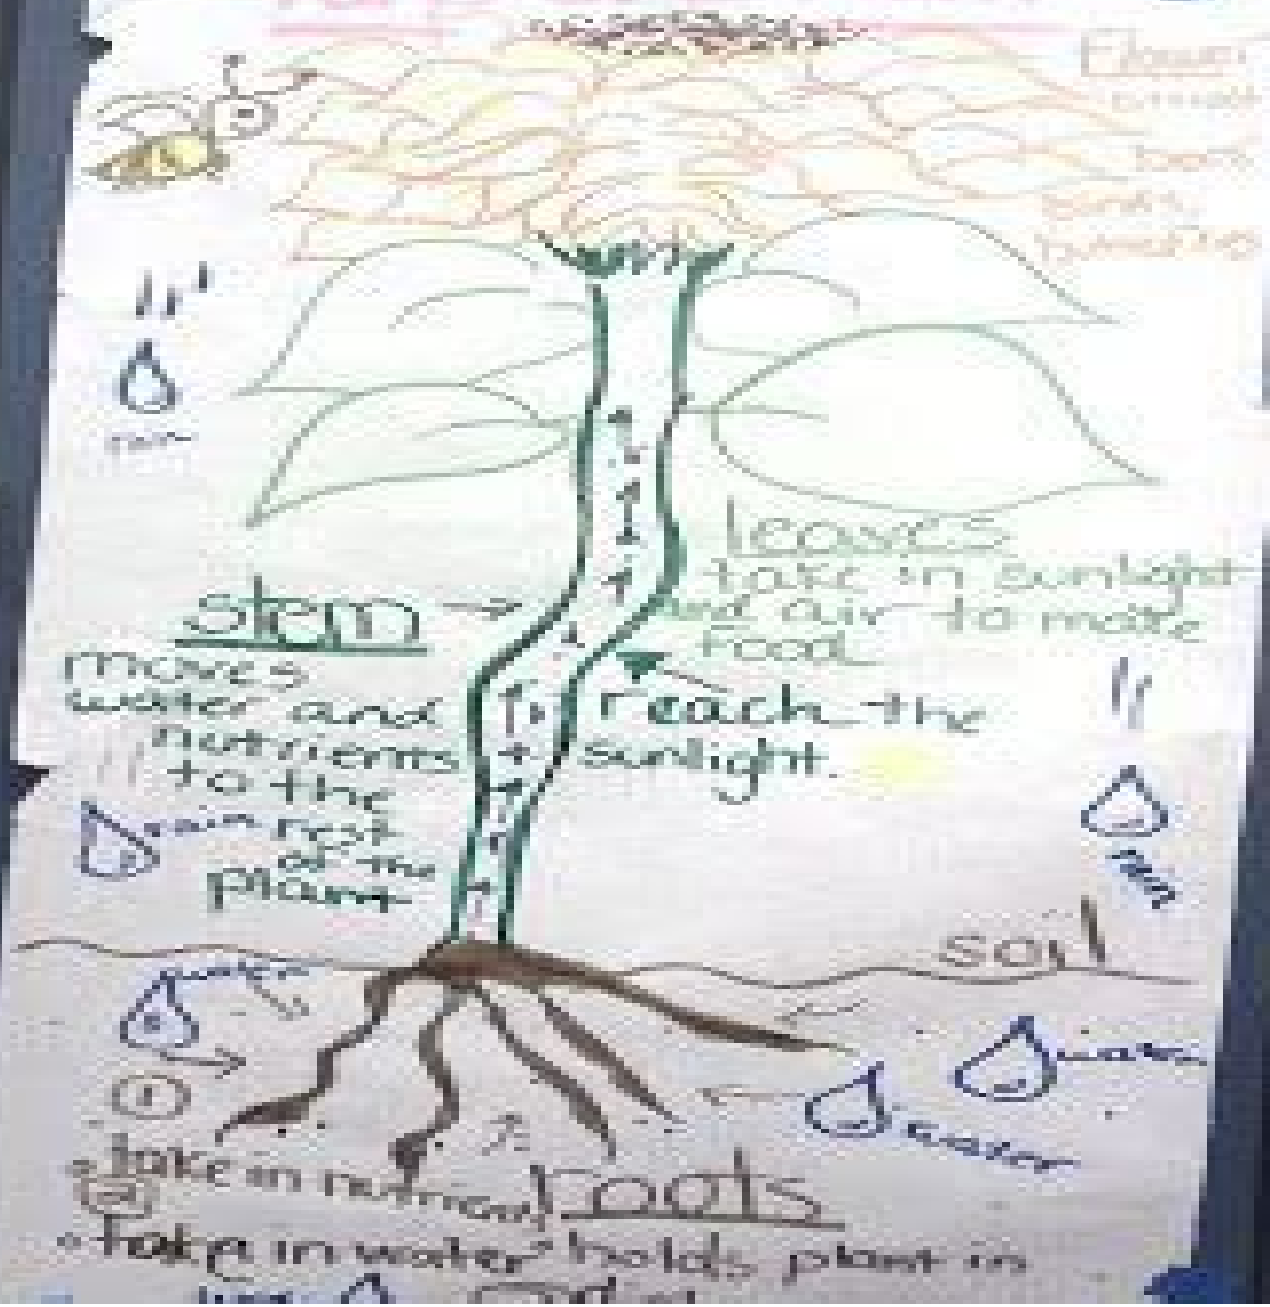 Flower
attract
bees
rain
leaves
take in sunlight
and air to make
food
stem
moves
water and
nutrients
to the
rest
of the
plant
reach the
sunlight.
rain
rain
soil
water
water
water
take in
roots
take in water holds plant in